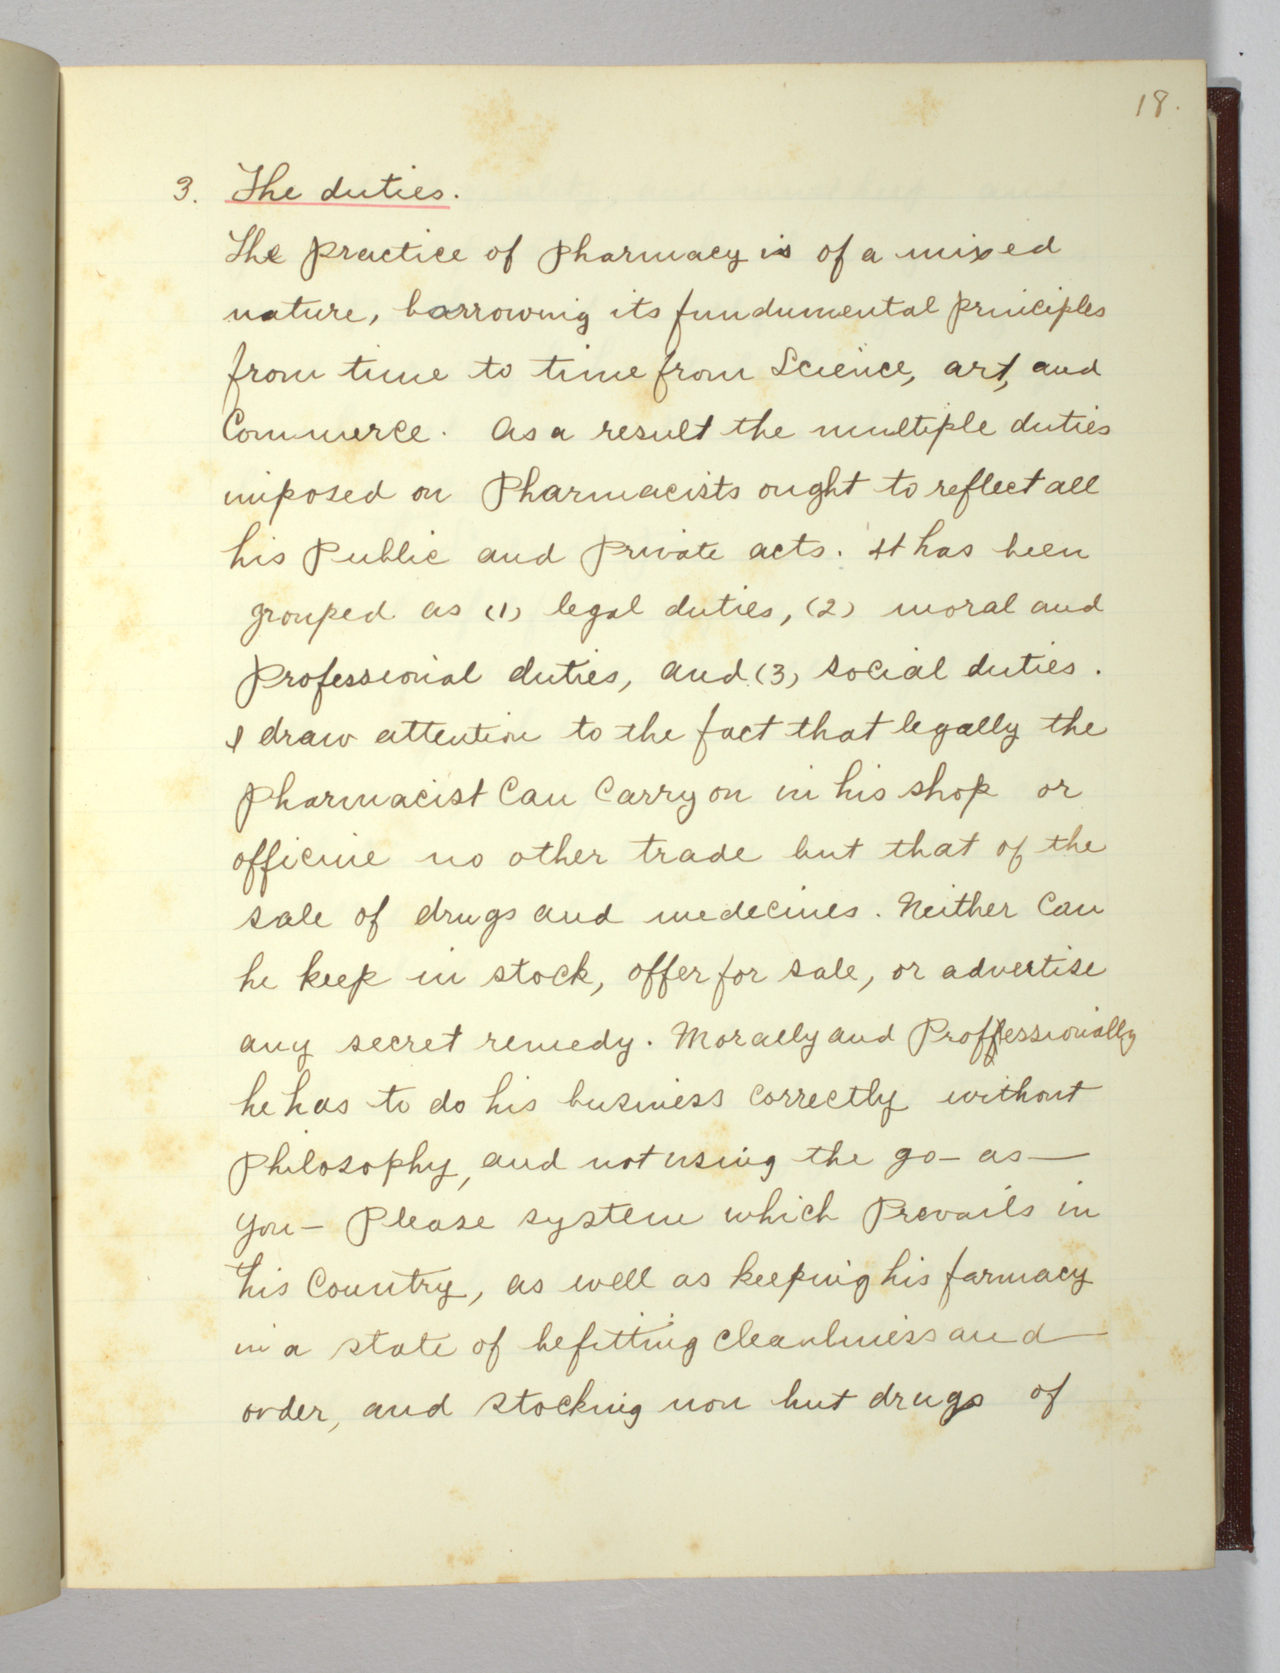 18.
3. The duties.
The practice of Pharmacy is of a mixed
nature, borrowing its fundumental principles
from time to time from Science, art, and
Commerce. As a result the multiple duties
imposed on Pharmacists ought to reflect all
his Public and Private acts. It has been
grouped as (1) legal duties, (2) moral and
Professional duties, and (3) social duties.
I draw attention to the fact that legally the
Pharmacist Can Carry on in his shop or
officine no other trade but that of the
sale of drugs and medecines. Neither Can
he keep in stock, offer for sale, or advertise
any secret remedy. Morally and Proffessionially
he has to do his business correctly without
Philosophy, and not using the go-as-
you-Please system which Prevails in
this Country, as well as keeping his farmacy
in a state of befitting Cleanliness and
order, and stocking non but drugs of